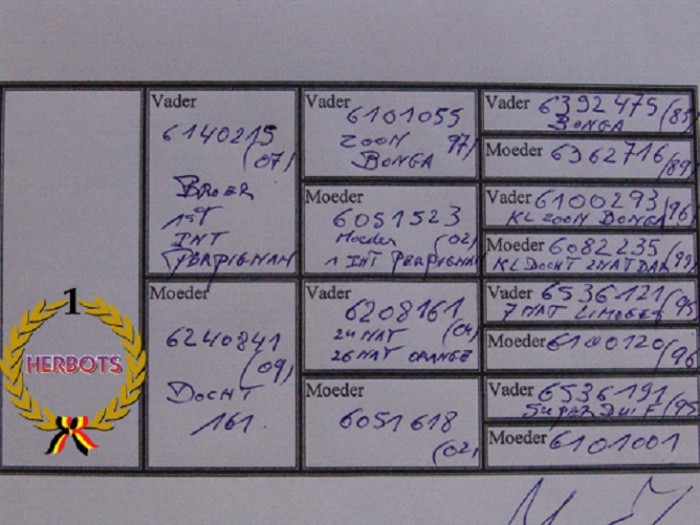 1
HERBOTS
Vader
6140215
(07)
BROER
1STE
INT
PERPIGNAN
Moeder
6240841
(09)
DOCHT
161.
Vader
6101055
ZOON 97)
BONGA
Moeder
6051523
Moeder (02)
1 INT PERPIGNAN
Vader
6208161
24 NAT (04)
26 NAT ORANGE
Moeder
6051618
(02)
Vader 6392475 (85)
BONGA
Moeder 6362716 (89)
Vader 6100293 (96)
KL ZOON BONGA
Moeder 6082235 (99)
KL DOCHT 2 NAT DAX
Vader 6536121 (95)
7 NAT LIMOGES
Moeder 6100120 (96)
Vader 6536191 (95)
SUPER DUIF
Moeder 6101001